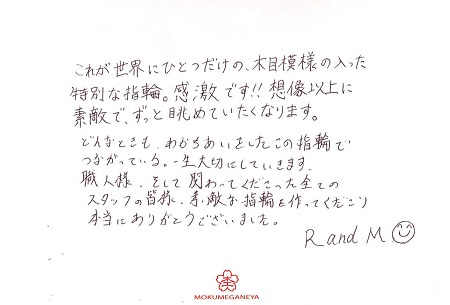 これが世界にひとつだけの、木目模様の入った
特別な指輪。感激です!!想像以上に
素敵で、ずっと眺めていたくなります。
どんなときも、わかちあいをしたこの指輪で
つながっている。一生大切にしていきます。
職人様、そして関わってくださった全ての
スタッフの皆様、素敵な指輪を作ってくださり
本当にありがとうございました。
R and M
MOKUMEGANEYA